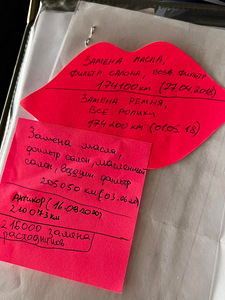 ЗАМЕНА МАСЛА,
ФИЛЬТР САЛОНА, ВОЗД. ФИЛЬТР
174100 КМ (27.04.2018)
ЗАМЕНА РЕМНЯ,
ВСЕ РОЛИКИ
174 200 КМ (01.05.18)
Замена масла,
фильтр салон, масленный
салон, воздушн. фильтр
205050 км (03.06.20
Антикор (16.09.2020)
210073 км
215000 замена
расходников